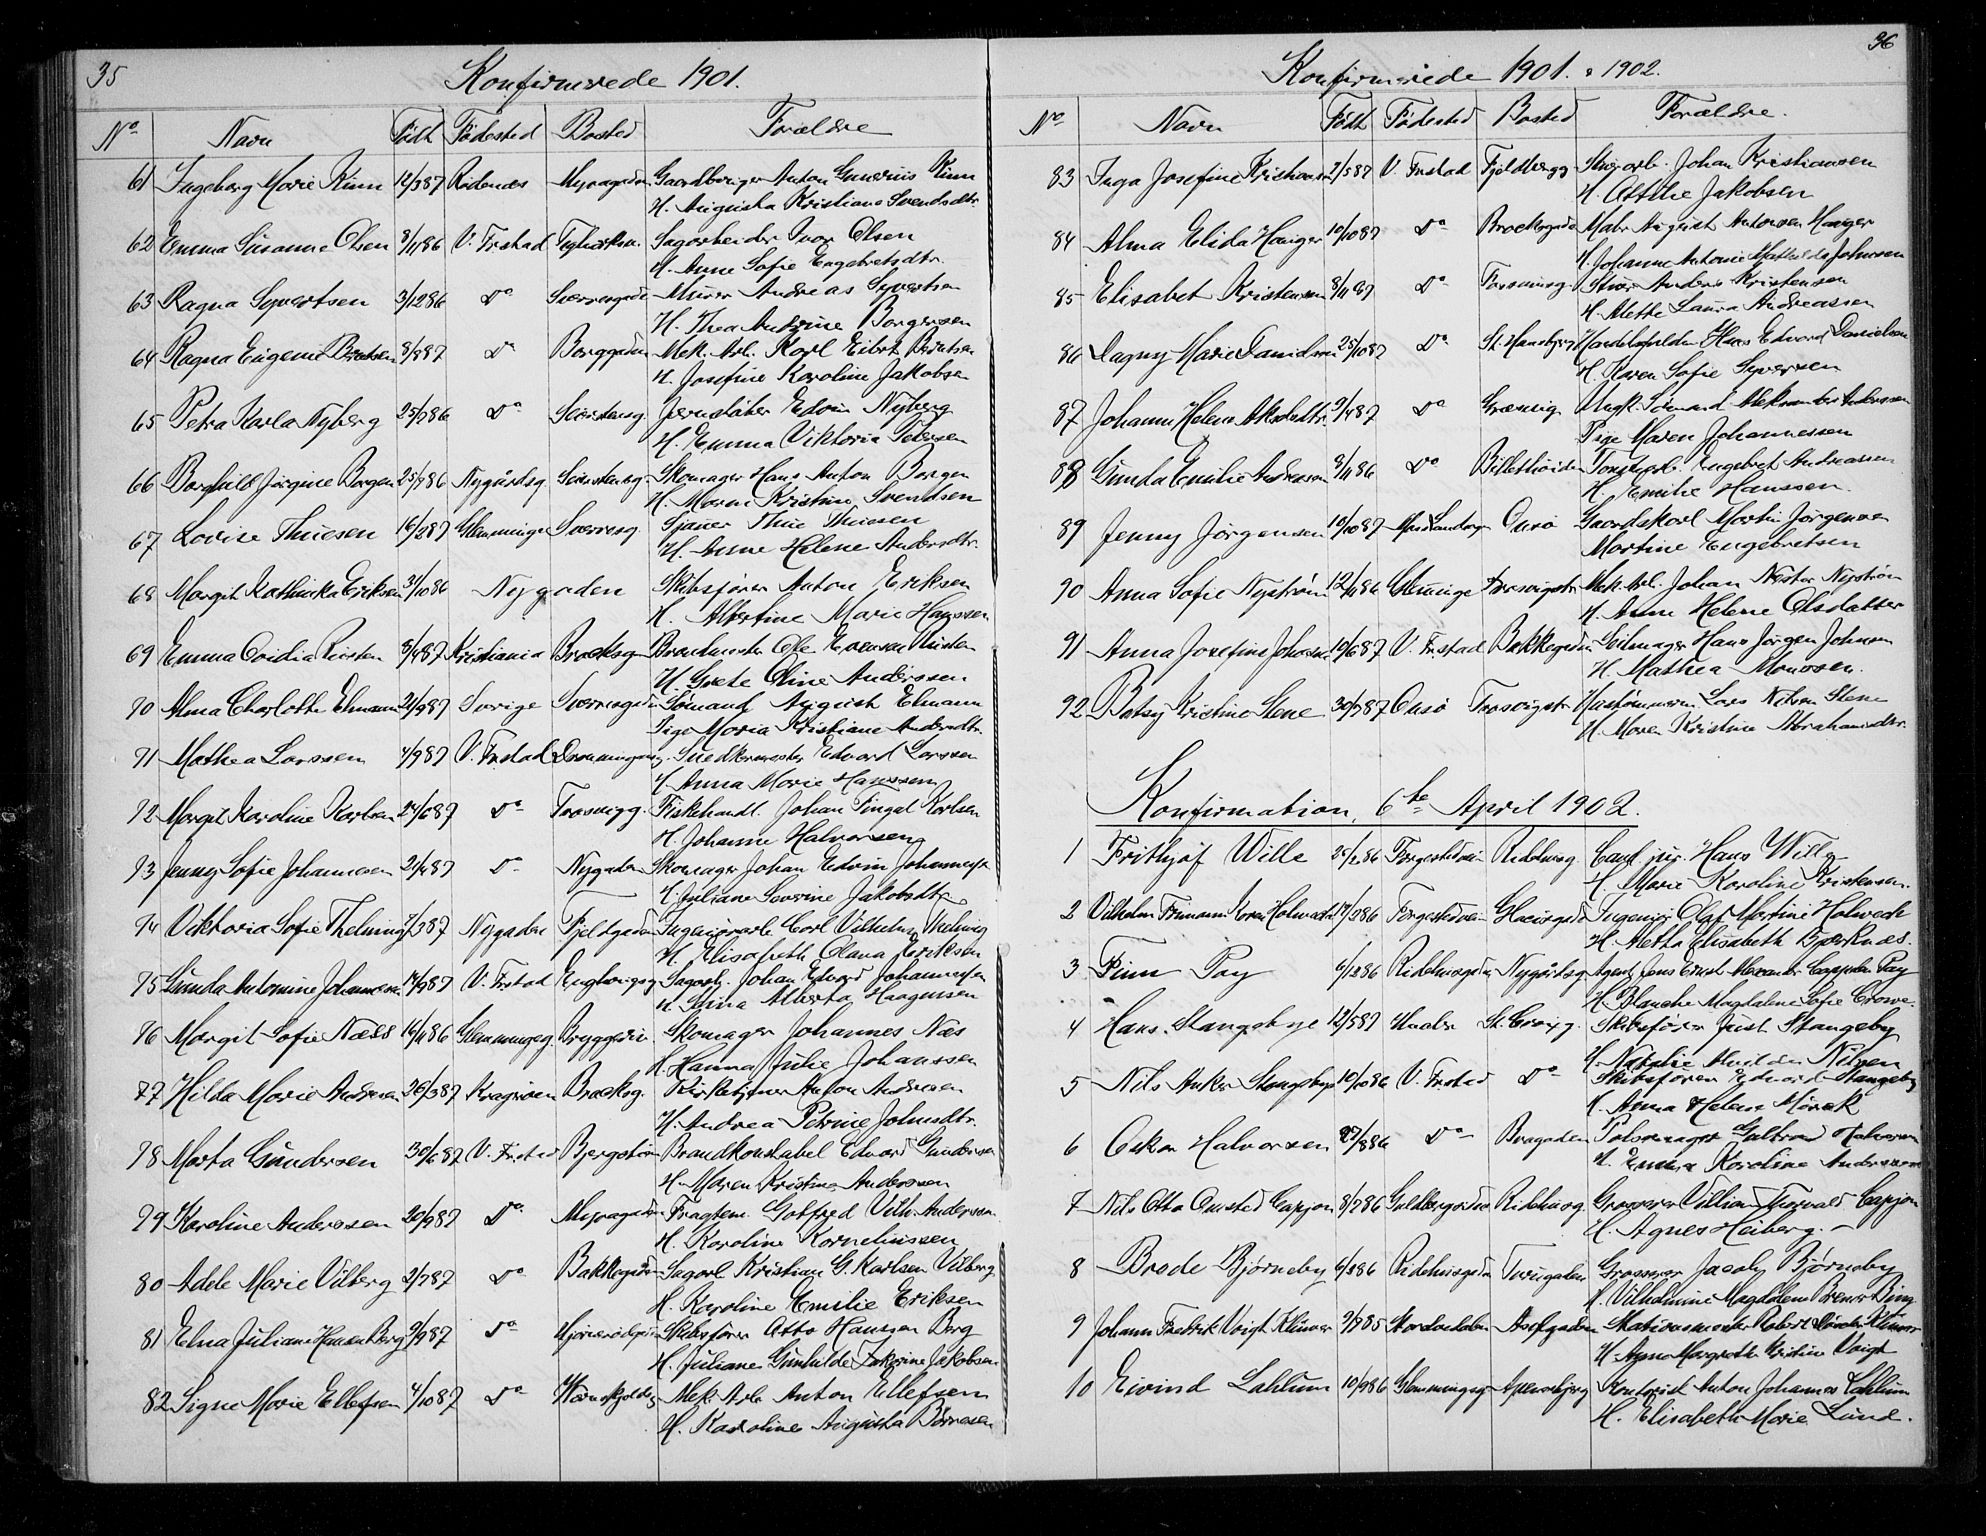 35
Konfirmerede 1901.
No Navn Født Fødested Bosted Forældre
61 Ingeborg Marie Rinn 12/387 Rødenæs Myragaden Gaardbruger Anton Gunerius Rinn
H. Augusta Kristiane Svendsdtr.
62 Emma Susanne Olsen 8/1186 V. Frstad Teglverksv. Sagarbeider Ivar Olsen
H. Anne Sofie Engebretsdtr.
63 Ragna Syvertsen 3/1286 Do Sverresgade Murer Andreas Syvertsen
H. Thea Andrine Borgersen
64 Ragna Eugenie Berntsen 8/887 Do Borggaden Mek. Arb. Karl Eibert Berntsen
H. Josefine Karoline Jakobsen
65 Petra Karla Nyberg 25/786 Do Jernstøber Edvin Nyberg
H. Emma Viktoria Petersen
66 Borghild Jørgine Borgen 25/986 Nygårdsg Skomager Hans Anton Borgen
H. Maren Kristine Svendsen
67 Lovise Thuesen 16/287 Glemminge Sverresg. Sjauer Thue Thuesen
H. Anne Helene Andersdtr.
68 Margit Kathinka Eriksen 31/1086 Nygaden Skibsfører Anton Eriksen
H. Albertine Marie Hanssen
69 Emma Ovidia 8/487 Kristiania Brochsgn Ole Evensen
H. Grete Oline Anderssen
70 Alma Charlotte Elmann 21/987 Sverige Sverresgaden Sømand August Elmann
Pige Maria Kristiane Andersdtr.
71 Mathea Larssen 4/987 V. Frstad Snedkermester Edvard Larssen
H. Anna Marie Hanssen
72 Margit Karoline Karlsen 24/687 Do Trosvigg. Fiskehandl. Johan Karlsen
H. Johanne Halvorsen
73 Jenny Sofie Johannesen 21/487 Do Nygaden Skomager Johan Edvin Johannesen
H. Juliane Severine Jakobsdtr.
74 Viktoria Sofie Thelning 7/387 Nygaden Fjeldgaden Carl Vilhelm Thelning
H. Elisabeth Olava Eriksen
75 Gunda Antonine Johannesen 14/987 V. Frstad Sagarb. Johan Edvard Johannesen
H. Alberta Haagensen
76 Margit Sofie Næss 16/1186 Glemmingeg. Bryggeriv. Skomager Johannes Næs
H. Hanna Julie Johanssen
77 Hilda Marie Andresen 26/387 Kragerøen Brochsg. Kirketjener Anton Andresen
H. Andrea Petrine Johnsdtr.
78 Marta Gundersen 30/687 V. Frstad Brandkonstabel Edvard Gundersen
H. Maren Kristine Anderssen
79 Karoline Anderssen 20/987 Do Myragaden Fragtem. Gotfred Vilh. Anderssen
H. Karoline Korneliussen
80 Adele Marie Vilberg 2/787 Do Bakkegaden Sagarb. Kristian G. Karlsen Vilberg
H. Karoline Emilie Eriksen
81 Elna Juliane Hansen Berg 9/987 Do Skibsfører Otto Hanssen Berg
H. Juliane Gunhilde Jakobsen
82 Signe Marie Ellefsen 4/1087 Do Mek. Arb. Anton Ellefsen
H. Karoline Augusta
36
Konfirmerede 1901. & 1902.
No Navn Født Fødested Bosted Forældre.
83 Inga Josefine Kristiansen 2/587 V. Frstad Fjeldbergg Johan Kristiansen
H. Jakobsen
84 Alma Elida Hauger 10/1087 Do Brochsgade Maler August Antonsen Hauger
H. Johanne Antonie Mathilde Johnsen
85 Elisabet Kristensen 8/1187 Do Anders Kristensen
H. Mette Laura Andreassen
86 Dagny Marie Danielsen 25/1087 Do St. Hansbjerg Hans Edvard Danielsen
H. Karen Sofie Syversen
87 Johanne Helene Aleksdtr. 9/487 Do Ungk. Sømand Aleksander Anderssen
Pige Maren Johannessen
88 Gunda Emilie Andreassen 3/1186 Do Engebret Andreassen
H. Emilie Hanssen.
89 Jenny Jørgensen 10/1087 Onsø Gaardskarl Martin Jørgensen
Martine Engebretsen
90 Anna Sofie Nystrøm 12/1186 Glemminge Trosvigstr. Mek. Arb. Johan Nystrøm
H. Anne Helene Olsdatter
91 Anna Josefine Johnsen 19/687 V. Frstad Bakkegaden Seilmager Hans Jørgen Johnsen
H. Mathea Monssen.
92 Betsy Kristine Stene 30/387 Onsø Trosvigstr. Hustømmerm. Lars Nilsen Stene
H. Maren Kristine Abrahamsdtr.
Konfirmation, 6te April 1902.
1 Frithjof Wille 25/286 Færgestedsvei Ridehusg. Cand. jur. Hans Wille
H. Marie Karoline Kristensen.
2 Vilhelm Holwech 17/386 Færgestedsvei Ingeniør Olaf Martini Holwech
H. Metha Elisabeth Bjerknæs.
3 Finn Pay 6/1286 Ridehusgaden Nygårdsg. Agent Jens Ernst Alexander Cappelen Pay
H. Blanche Magdalene Sofie Crowe.
4 Hans Stangebye 12/587 St. Croixg. Skibsfører Just Stangeby
H. Natalie Nilsen
5 Nils Anker Stangebye 10/1086 V. Frstad Do Skibsføreren Edvard Stangeby
H. Anna Helene Mørck
6 Oskar Halvorsen 27/886 Do Bragaden Pølsemager Halvorsen
H. Emma Karoline Anderssen
7 Nils Otto Omsted Cappjon 8/786 Guldbergsveien Ridehusg. Grosserer Villiam Thorvald Cappjon
H. Agnes Heiberg. —
8 Brede Bjørneby 6/886 Ridehusgaden Torvgaden Grosserer Jacob Bjørneby
H. Vilhelmine Magdalene
9 Johann Fredrik Voigt Klüwer 9/885 Stordalen Stationsmester Robert Klüwer
H. Anna Margrethe Kristine Voigt
10 Eivind Lahlum 10/986 Glemmingeg. Apenesbjerg Kontorist Anton Johannes Lahlum
H. Elisabeth Marie Lund.